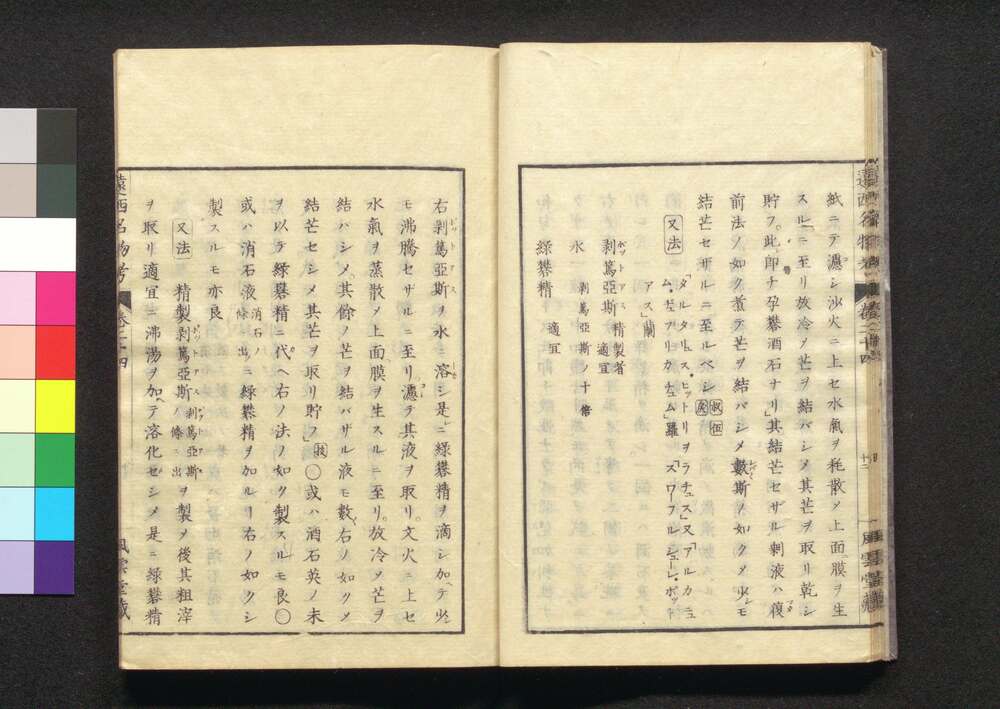 紙ニテ濾シ沙火ニ上セ水氣ヲ耗散〆上面膜ヲ生
スルニ至リ放冷〆芒ヲ結バシメ其芒ヲ取リ乾シ
貯フ此即チ孕礬酒石ナリ其結芒セザル剰液ハ復
前法ノ如ク煮テ芒ヲ結バシメ數斯ノ如ク〆少モ
結芒セザルニ至ルベシ
又法
アス」蘭
剥篤亞斯 精製者 適宜
水 剥篤亞斯ノ十倍
綠礬精 適宜
右剥篤亞斯ヲ水ニ溶シ是ニ綠礬精ヲ滴シ加ヘテ少
モ沸騰セザルニ至リ濾テ其液ヲ取リ文火ニ上セ
水氣ヲ蒸散〆上面膜ヲ生スルニ至リ放冷〆芒ヲ
結ハシメ其餘ノ芒ヲ結バザル液モ數右ノ如ク〆
結芒セシメ其芒ヲ取リ貯フ 〇或ハ酒石英ノ末
ヲ以テ綠礬精ニ代ヘ右ノ法ノ如ク製スルモ良〇
或ハ消石液 消石條ニ出 ニ綠礬精ヲ加ルリ右ノ如クシ
製スルモ亦良
又法 精製剥篤亞斯 剥篤亞斯ノ條ニ出 ヲ製〆後其粗滓
ヲ取リ適宜ニ沸湯ヲ加ヘテ溶化セシメ是ニ綠礬精
遠西名物考 卷二十四 風雲堂藏